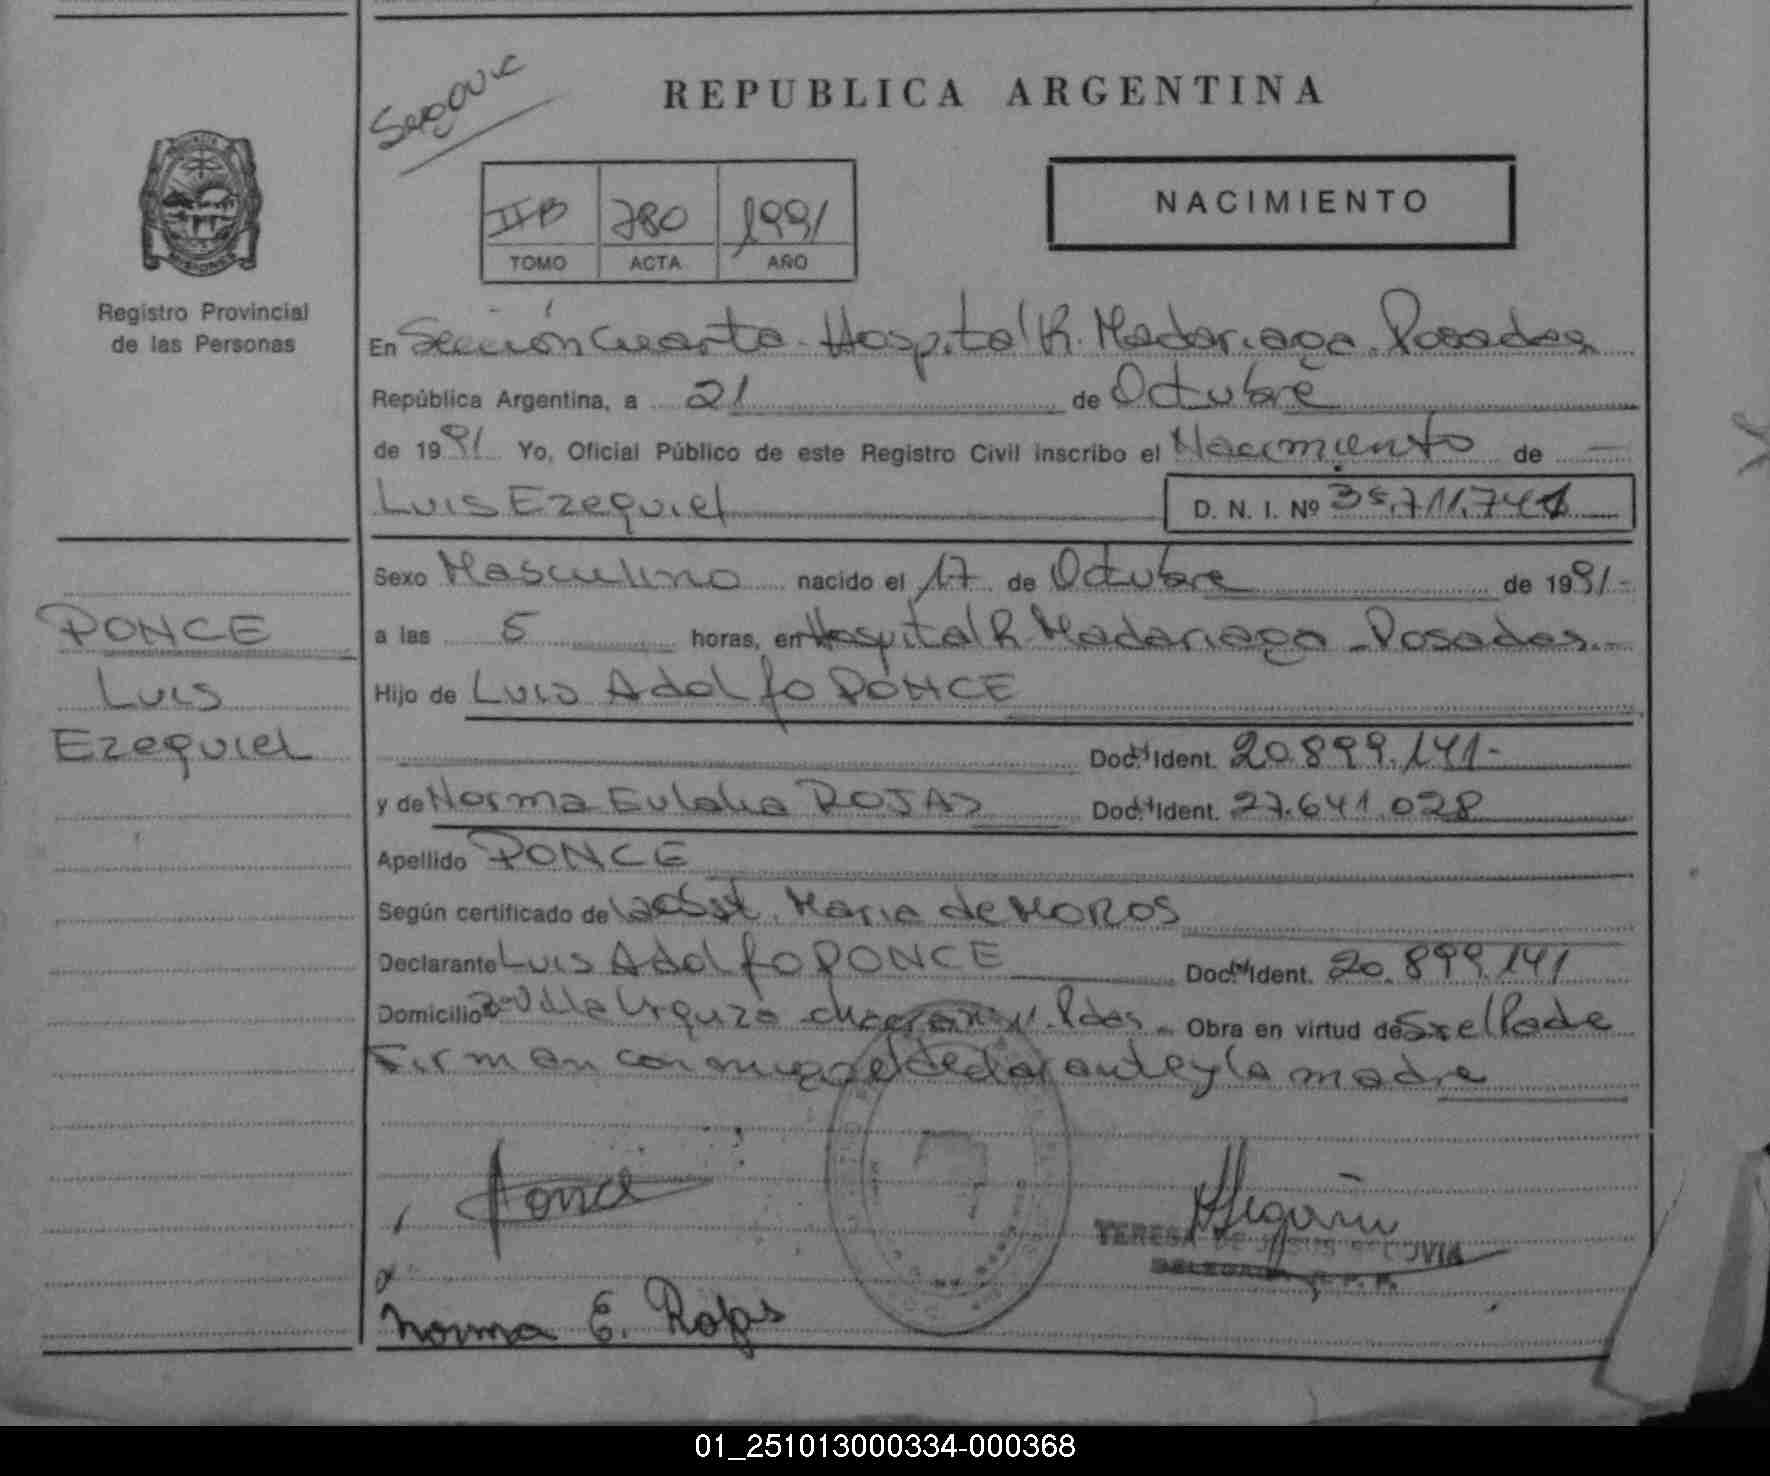 REPUBLICA ARGENTINA
NACIMIENTO
IIB 780 1991
TOMO ACTA AÑO
MISIONES
Registro Provincial
de las Personas
En Sección Cuarta - Hospital R. Madariaga. Posadas
República Argentina, a 21 de Octubre
de 1991 Yo, Oficial Público de este Registro Civil inscribo el Nacimiento de —
Luis Ezequiel
D. N. I. Nº
Sexo Masculino nacido el 17 de Octubre de 1991-
PONCE
Luis
Ezequiel
a las 5 horas, en Hospital R. Madariaga - Posadas.-
Hijo de Luis Adolfo PONCE
Doc. Ident. 20.899.141-
y de Norma Eulalia ROJAS Doc. Ident. 27.641.028
Apellido PONCE
Según certificado de Maria de MOROS
Declarante Luis Adolfo PONCE Doc. Ident. 20.899.141
Domicilio Villa Urquiza Pdas. Obra en virtud de el Padre
Firman conmigo el declarante y la madre
Ponce
TERESA DE JESUS SEGOVIA
Norma E. Rojas
01_251013000334-000368